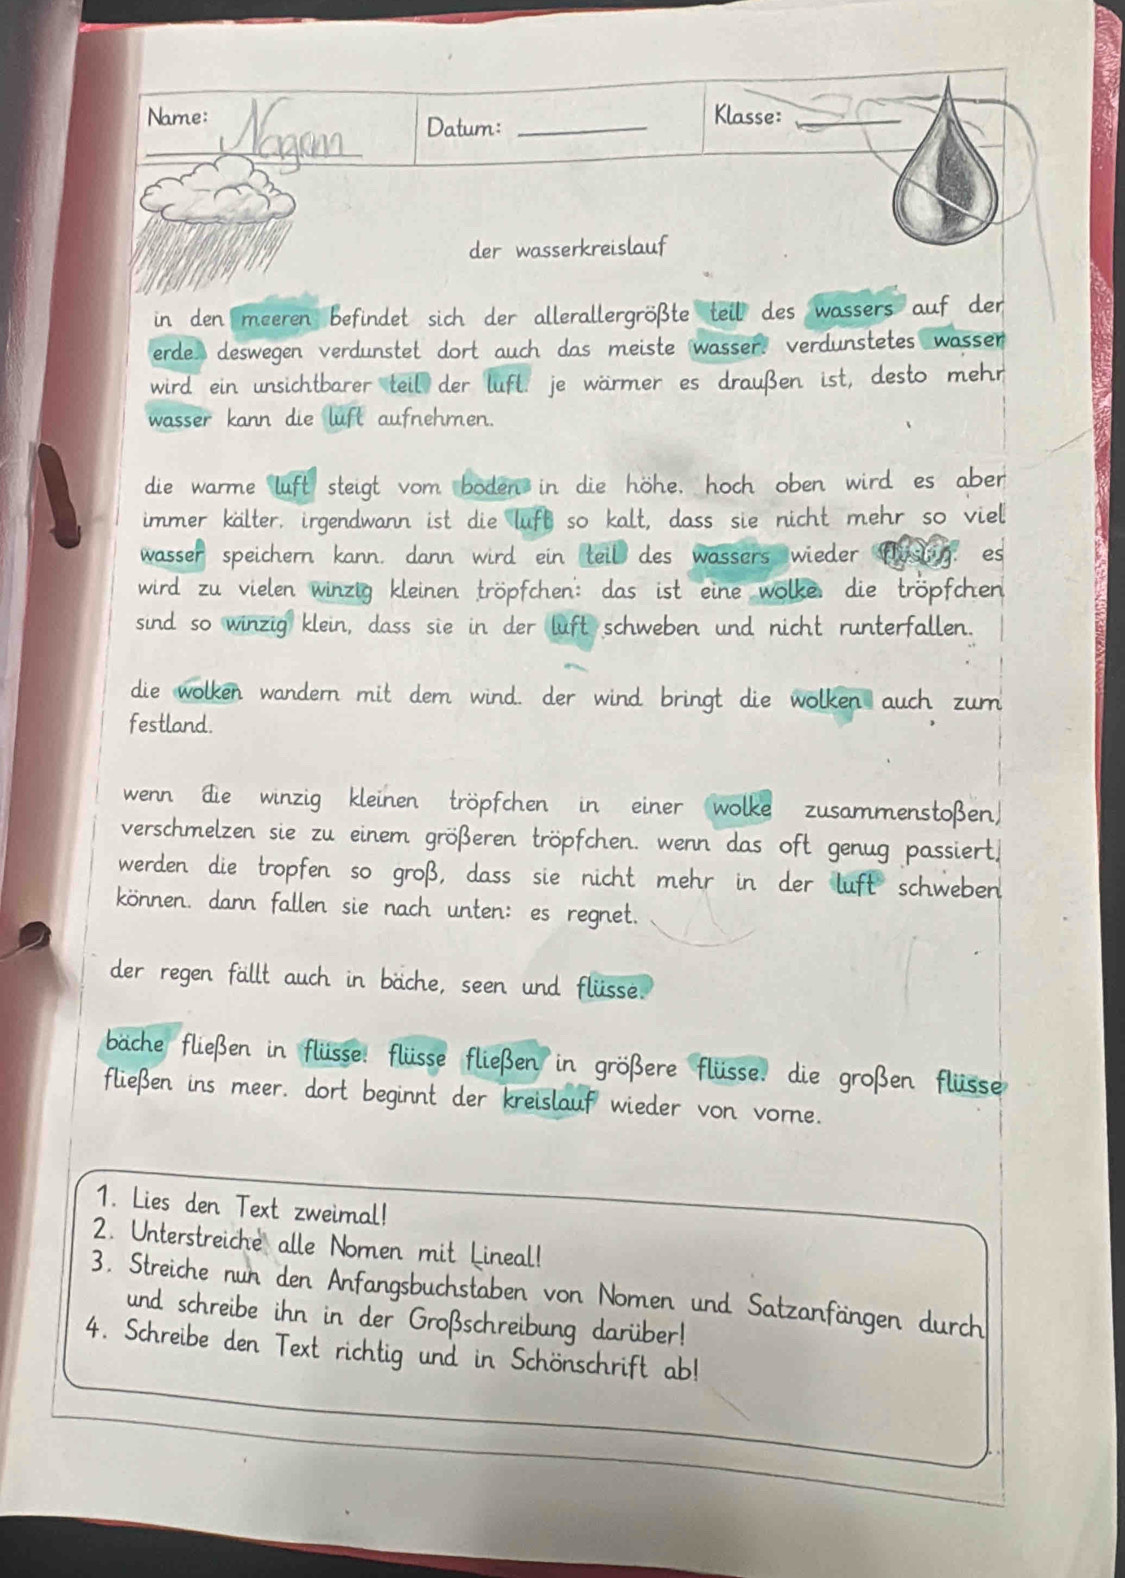 Name: Nagam Datum: Klasse:
der wasserkreislauf
in den meeren befindet sich der allerallergrößte teil des wassers auf der
erde. deswegen verdunstet dort auch das meiste wasser. verdunstetes wasser
wird ein unsichtbarer teil der luft. je wärmer es draußen ist, desto mehr
wasser kann die luft aufnehmen.
die warme luft steigt vom boden in die höhe. hoch oben wird es aber
immer kälter. irgendwann ist die luft so kalt, dass sie nicht mehr so viel
wasser speichern kann. dann wird ein teil des wassers wieder flüssig. es
wird zu vielen winzig kleinen tröpfchen: das ist eine wolke. die tröpfchen
sind so winzig klein, dass sie in der luft schweben und nicht runterfallen.
die wolken wandern mit dem wind. der wind bringt die wolken auch zum
festland.
wenn die winzig kleinen tröpfchen in einer wolke zusammenstoßen,
verschmelzen sie zu einem größeren tröpfchen. wenn das oft genug passiert,
werden die tropfen so groß, dass sie nicht mehr in der luft schweben
können. dann fallen sie nach unten: es regnet.
der regen fällt auch in bäche, seen und flüsse.
bäche fließen in flüsse. flüsse fließen in größere flüsse. die großen flüsse
fließen ins meer. dort beginnt der kreislauf wieder von vorne.
1. Lies den Text zweimal!
2. Unterstreiche alle Nomen mit Lineal!
3. Streiche nun den Anfangsbuchstaben von Nomen und Satzanfängen durch
und schreibe ihn in der Großschreibung darüber!
4. Schreibe den Text richtig und in Schönschrift ab!